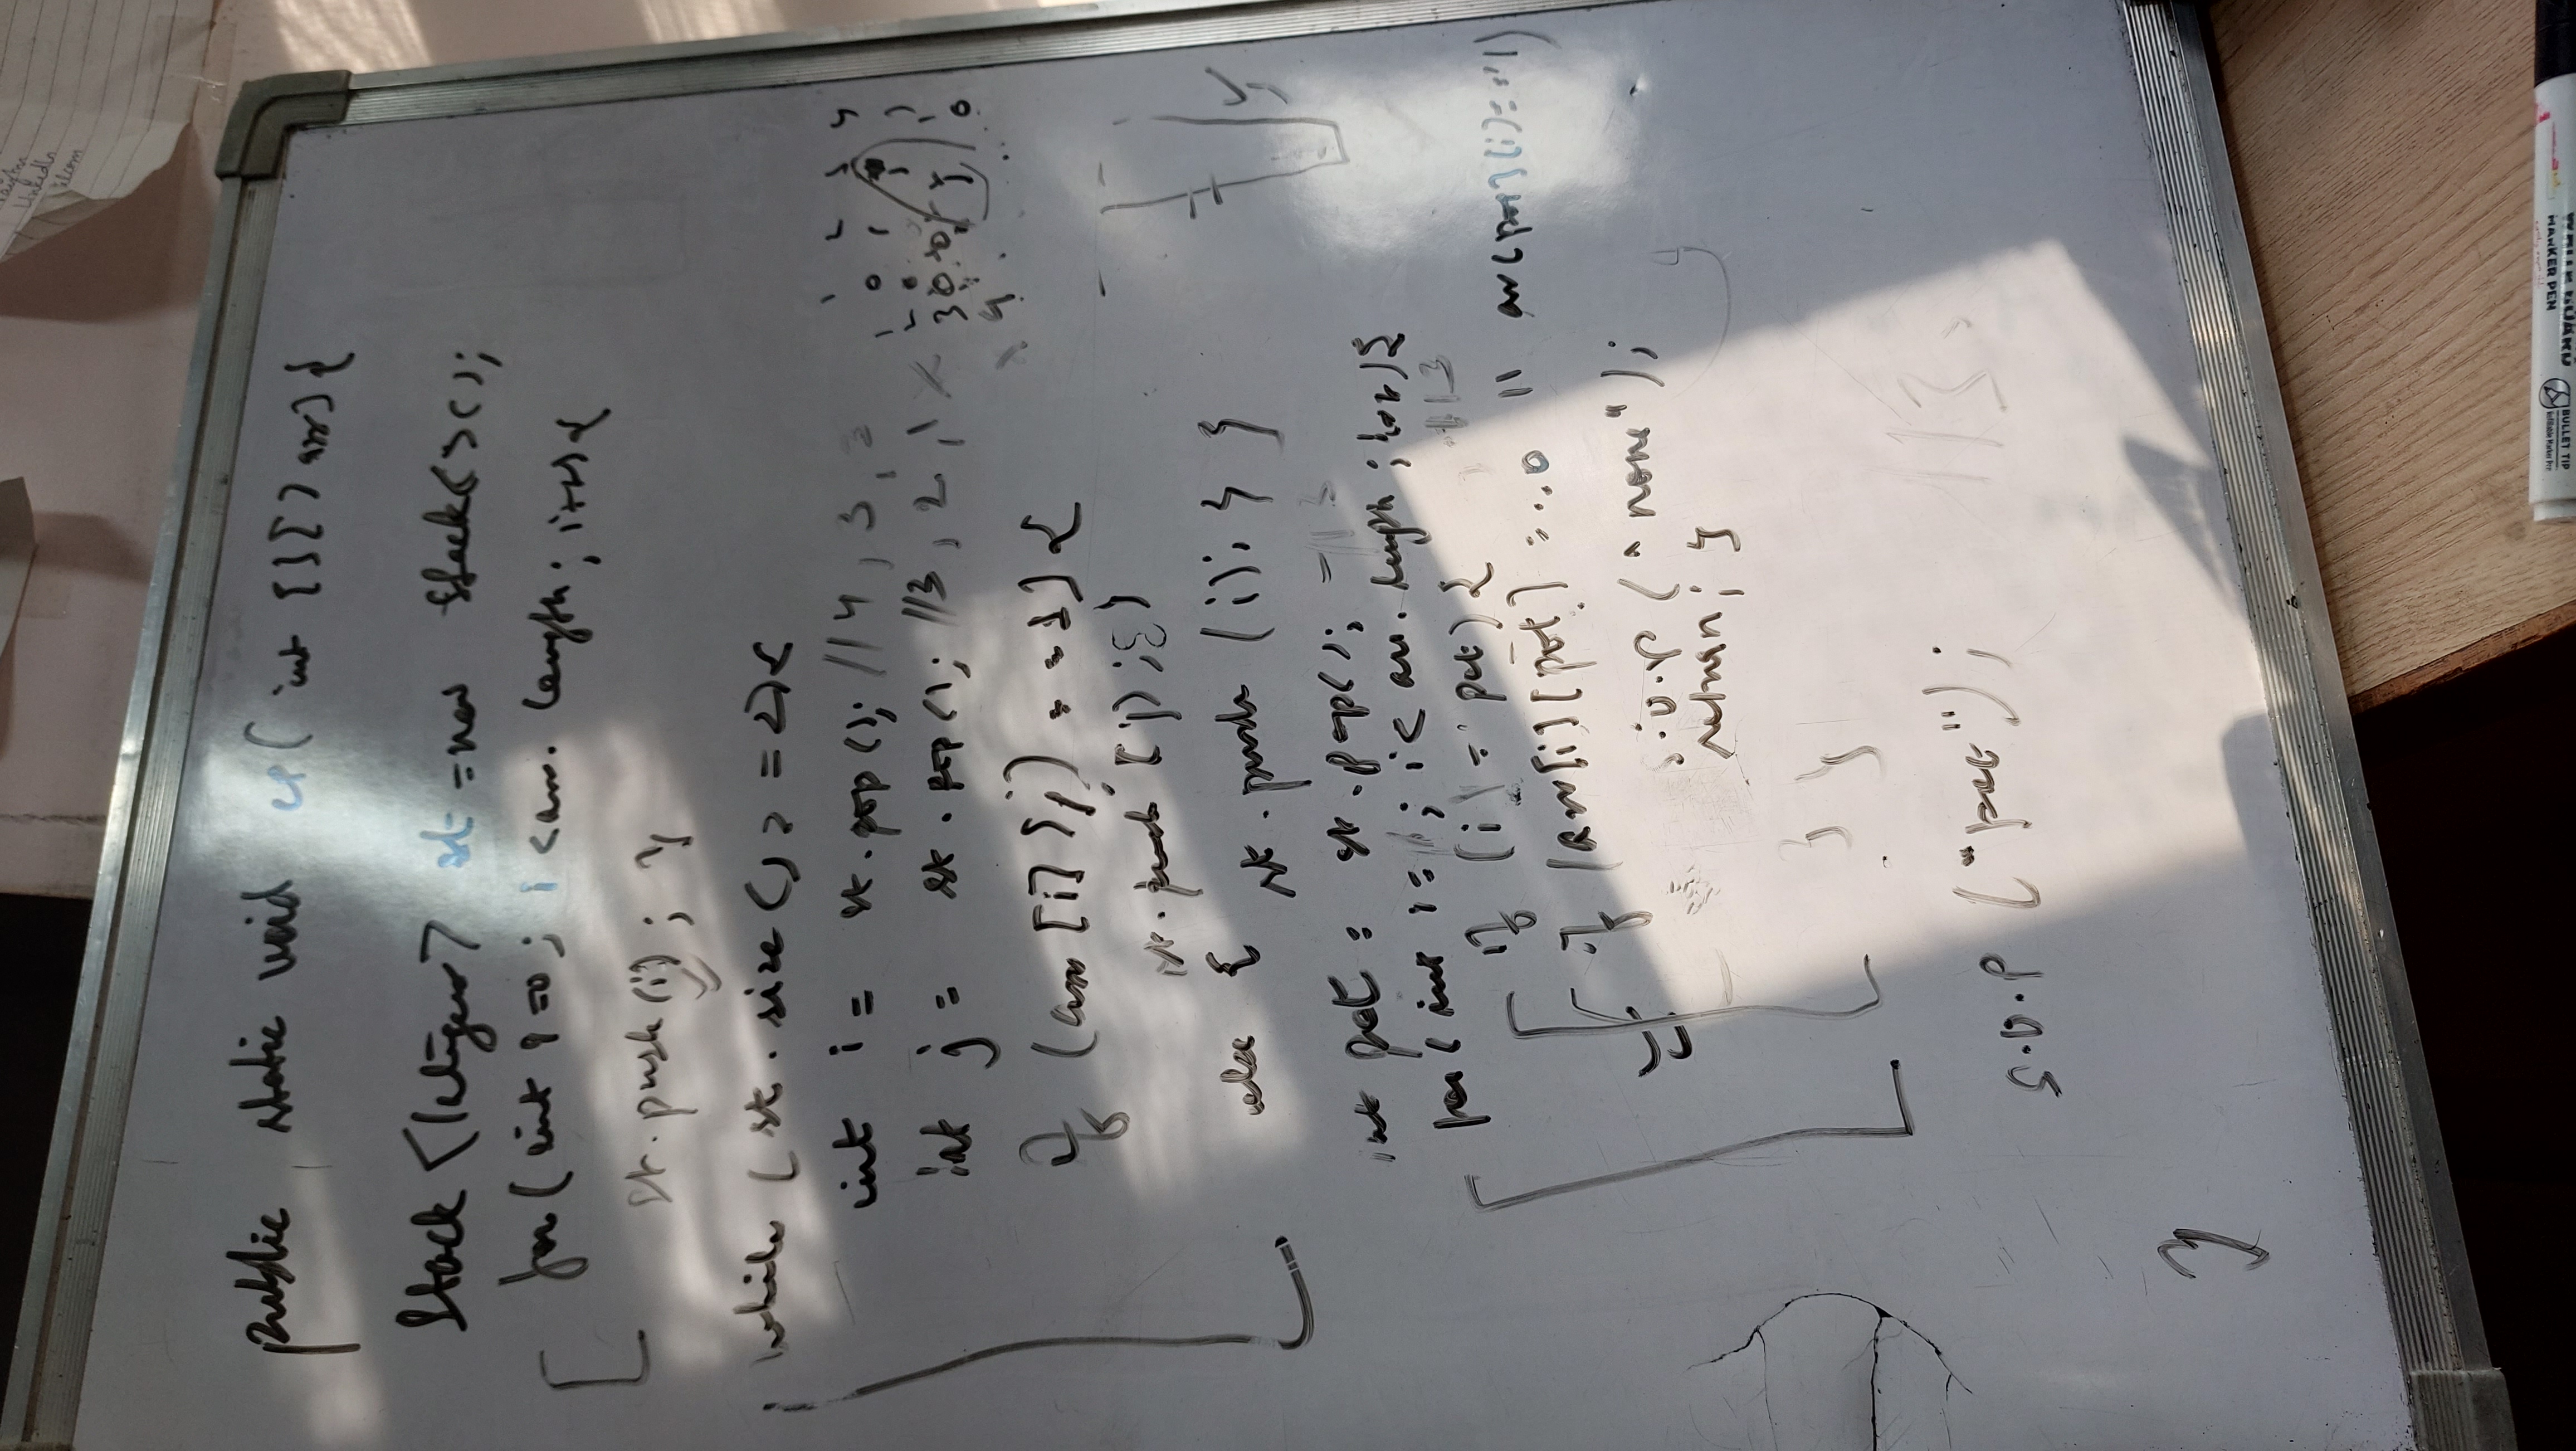 LinkedIn
public static void cs( int [][] arr){
Stack <Integer> st = new Stack<>();
for( int i=0; i<arr. length; i++){
st.push(i); }
while ( st. size()>=2){
int i = st.pop(); //4, 3, 2
int j = st.pop(); //3, 2, 1
if (arr[i][j] ==1){
st.push (j);}
else { st.push (i); } }
int pot = st.pop(); //3
for( int i= ; i< arr. length; i++){
if (i != pot) { //3
if (arr[i][pot] ==0 || arr[pot][i]==1)
S.O.P ("none");
return; }
} }
S.O.P ("pot"); //3
}
BULLET TIP
MARKER PEN